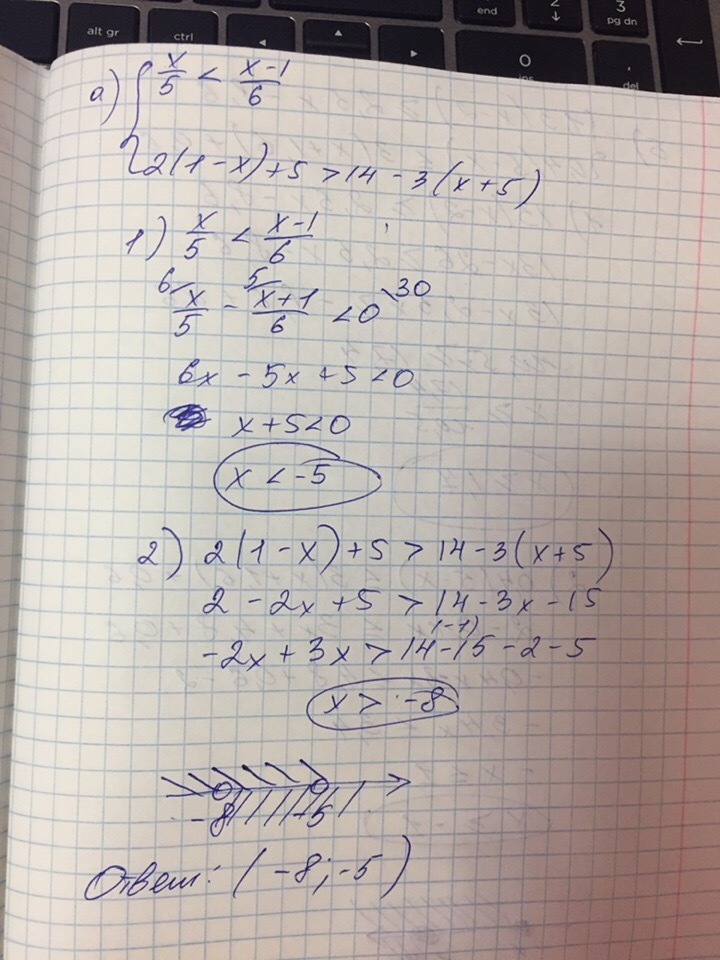 alt gr
ctrl
end
2
↓
3
pg dn
0
ins
.
а) { x/5 < x-1/6
2(1-x)+5 > 14-3(x+5)
1) x/5 < x-1/6
6/ x/5 - 5/ x+1/6 < 0 \30
6x - 5x + 5 < 0
x + 5 < 0
x < -5
2) 2(1-x)+5 > 14-3(x+5)
2 - 2x + 5 > 14 - 3x - 15
(-1)
-2x + 3x > 14 - 15 - 2 - 5
x > -8
-8 -5
Ответ: (-8; -5)